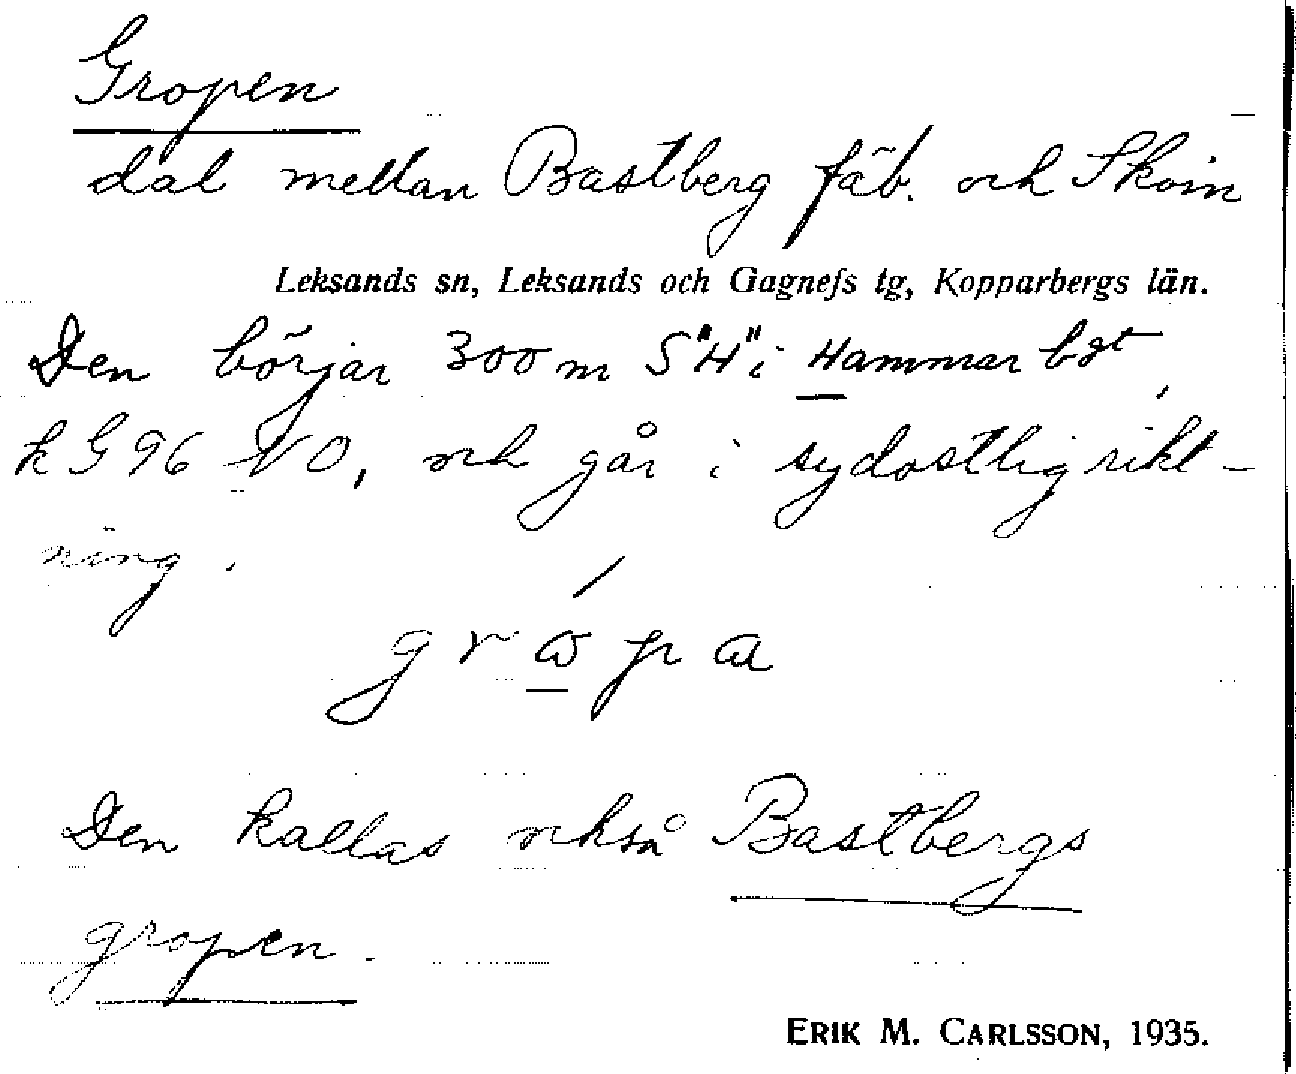 Gropen
dal mellan Bastberg fäb. och Skoin
Leksands sn, Leksands och Gagnefs tg, Kopparbergs län.
Den börjar 300 m S "H" i Hammarbgt,
k G 96 NO, och går i sydostlig rikt-
ning.
grɷ́pa
Den kallas också Bastbergs
gropen.
ERIK M. CARLSSON, 1935.